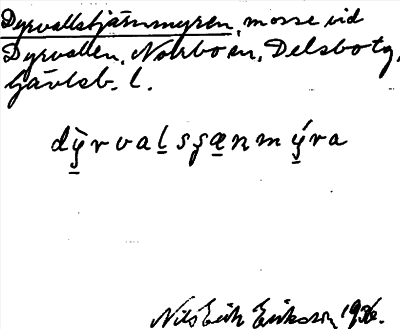 Dyrvallstjärnmyren, mosse vid
Dyrvallen, Norrboån, Delsbo tg,
Gävleb. l.
dỳ̲rval̲sʂæ̲nmý̲ra
Nils Erik Eriksson 1936.